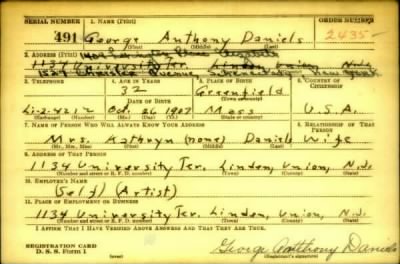 SERIAL NUMBER 1. NAME (Print) ORDER NUMBER
491 George Anthony Daniels 2435
(First) (Middle) (Last)
2. ADDRESS (Print)
1134 University Ter. Linden, Union, N.J.
Avenue New York
3. TELEPHONE 4. AGE IN YEARS 5. PLACE OF BIRTH 6. COUNTRY OF CITIZENSHIP
32 Greenfield
Li-2-4212 DATE OF BIRTH
Oct. 26 1907 Mass U.S.A.
(Exchange) (Number) (Mo.) (Day) (Yr.) (State or country)
7. NAME OF PERSON WHO WILL ALWAYS KNOW YOUR ADDRESS 8. RELATIONSHIP OF THAT PERSON
Mrs. Kathryn (none) Daniels Wife
(Mr., Mrs., Miss) (First) (Middle) (Last)
9. ADDRESS OF THAT PERSON
1134 University Ter. Linden, Union, N.J.
(Number and street or R. F. D. number) (Town) (County) (State)
10. EMPLOYER'S NAME
(Self) (Artist)
11. PLACE OF EMPLOYMENT OR BUSINESS
1134 University Ter. Linden, Union, N.J.
(Number and street or R. F. D. number) (Town) (County) (State)
I AFFIRM THAT I HAVE VERIFIED ABOVE ANSWERS AND THAT THEY ARE TRUE.
REGISTRATION CARD
D. S. S. Form 1 George Anthony Daniels
(Registrant's signature)